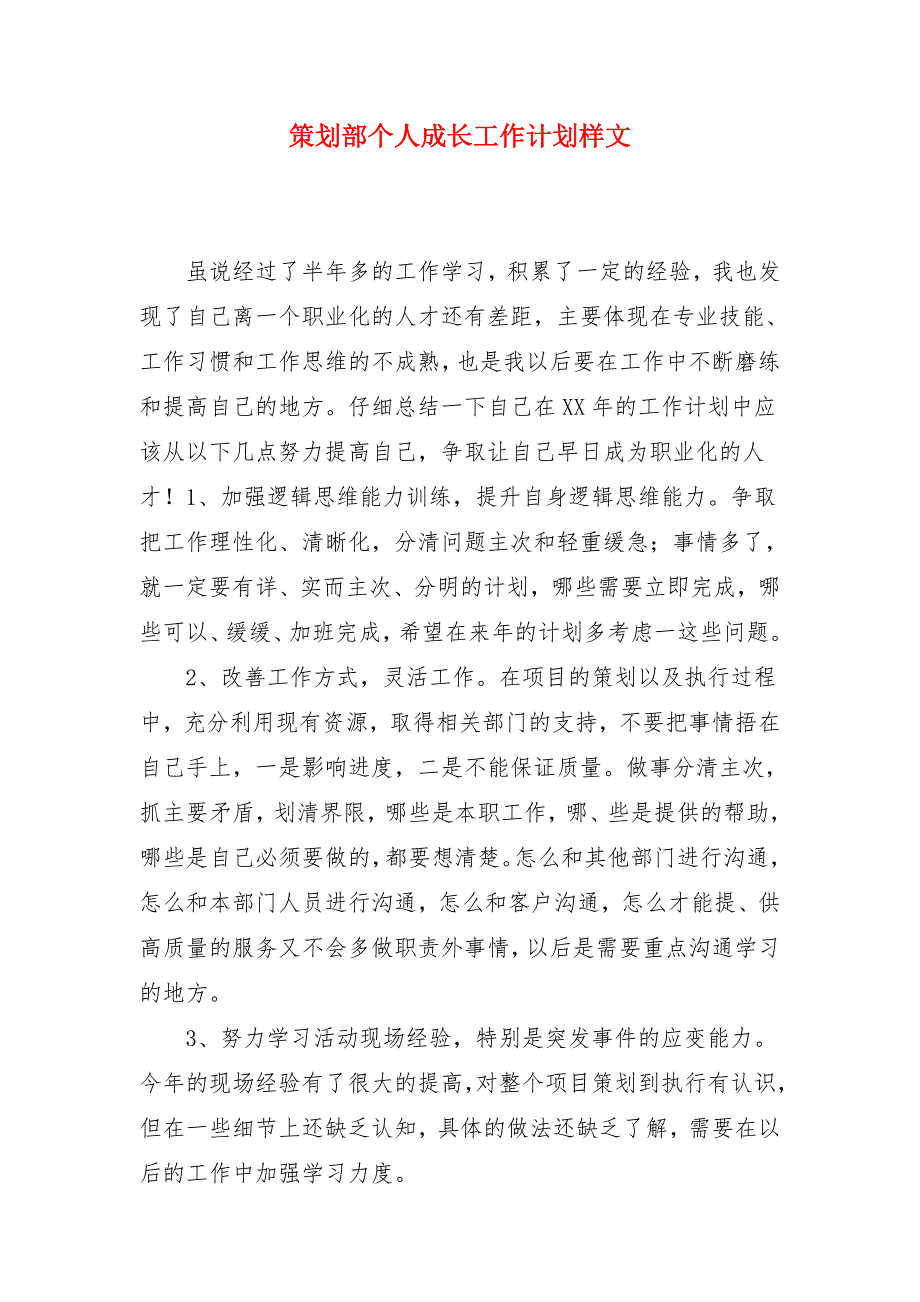 策划部个人成长工作计划样文
虽说经过了半年多的工作学习，积累了一定的经验，我也发
现了自己离一个职业化的人才还有差距，主要体现在专业技能、
工作习惯和工作思维的不成熟，也是我以后要在工作中不断磨练
和提高自己的地方。仔细总结一下自己在 XX 年的工作计划中应
该从以下几点努力提高自己，争取让自己早日成为职业化的人
才！1、加强逻辑思维能力训练，提升自身逻辑思维能力。争取
把工作理性化、清晰化，分清问题主次和轻重缓急；事情多了，
就一定要有详、实而主次、分明的计划，哪些需要立即完成，哪
些可以、缓缓、加班完成，希望在来年的计划多考虑一这些问题。
2、改善工作方式，灵活工作。在项目的策划以及执行过程
中，充分利用现有资源，取得相关部门的支持，不要把事情捂在
自己手上，一是影响进度，二是不能保证质量。做事分清主次，
抓主要矛盾，划清界限，哪些是本职工作，哪、些是提供的帮助，
哪些是自己必须要做的，都要想清楚。怎么和其他部门进行沟通，
怎么和本部门人员进行沟通，怎么和客户沟通，怎么才能提、供
高质量的服务又不会多做职责外事情，以后是需要重点沟通学习
的地方。
3、努力学习活动现场经验，特别是突发事件的应变能力。
今年的现场经验有了很大的提高，对整个项目策划到执行有认识，
但在一些细节上还缺乏认知，具体的做法还缺乏了解，需要在以
后的工作中加强学习力度。